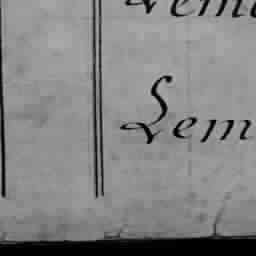 Lem
Lem